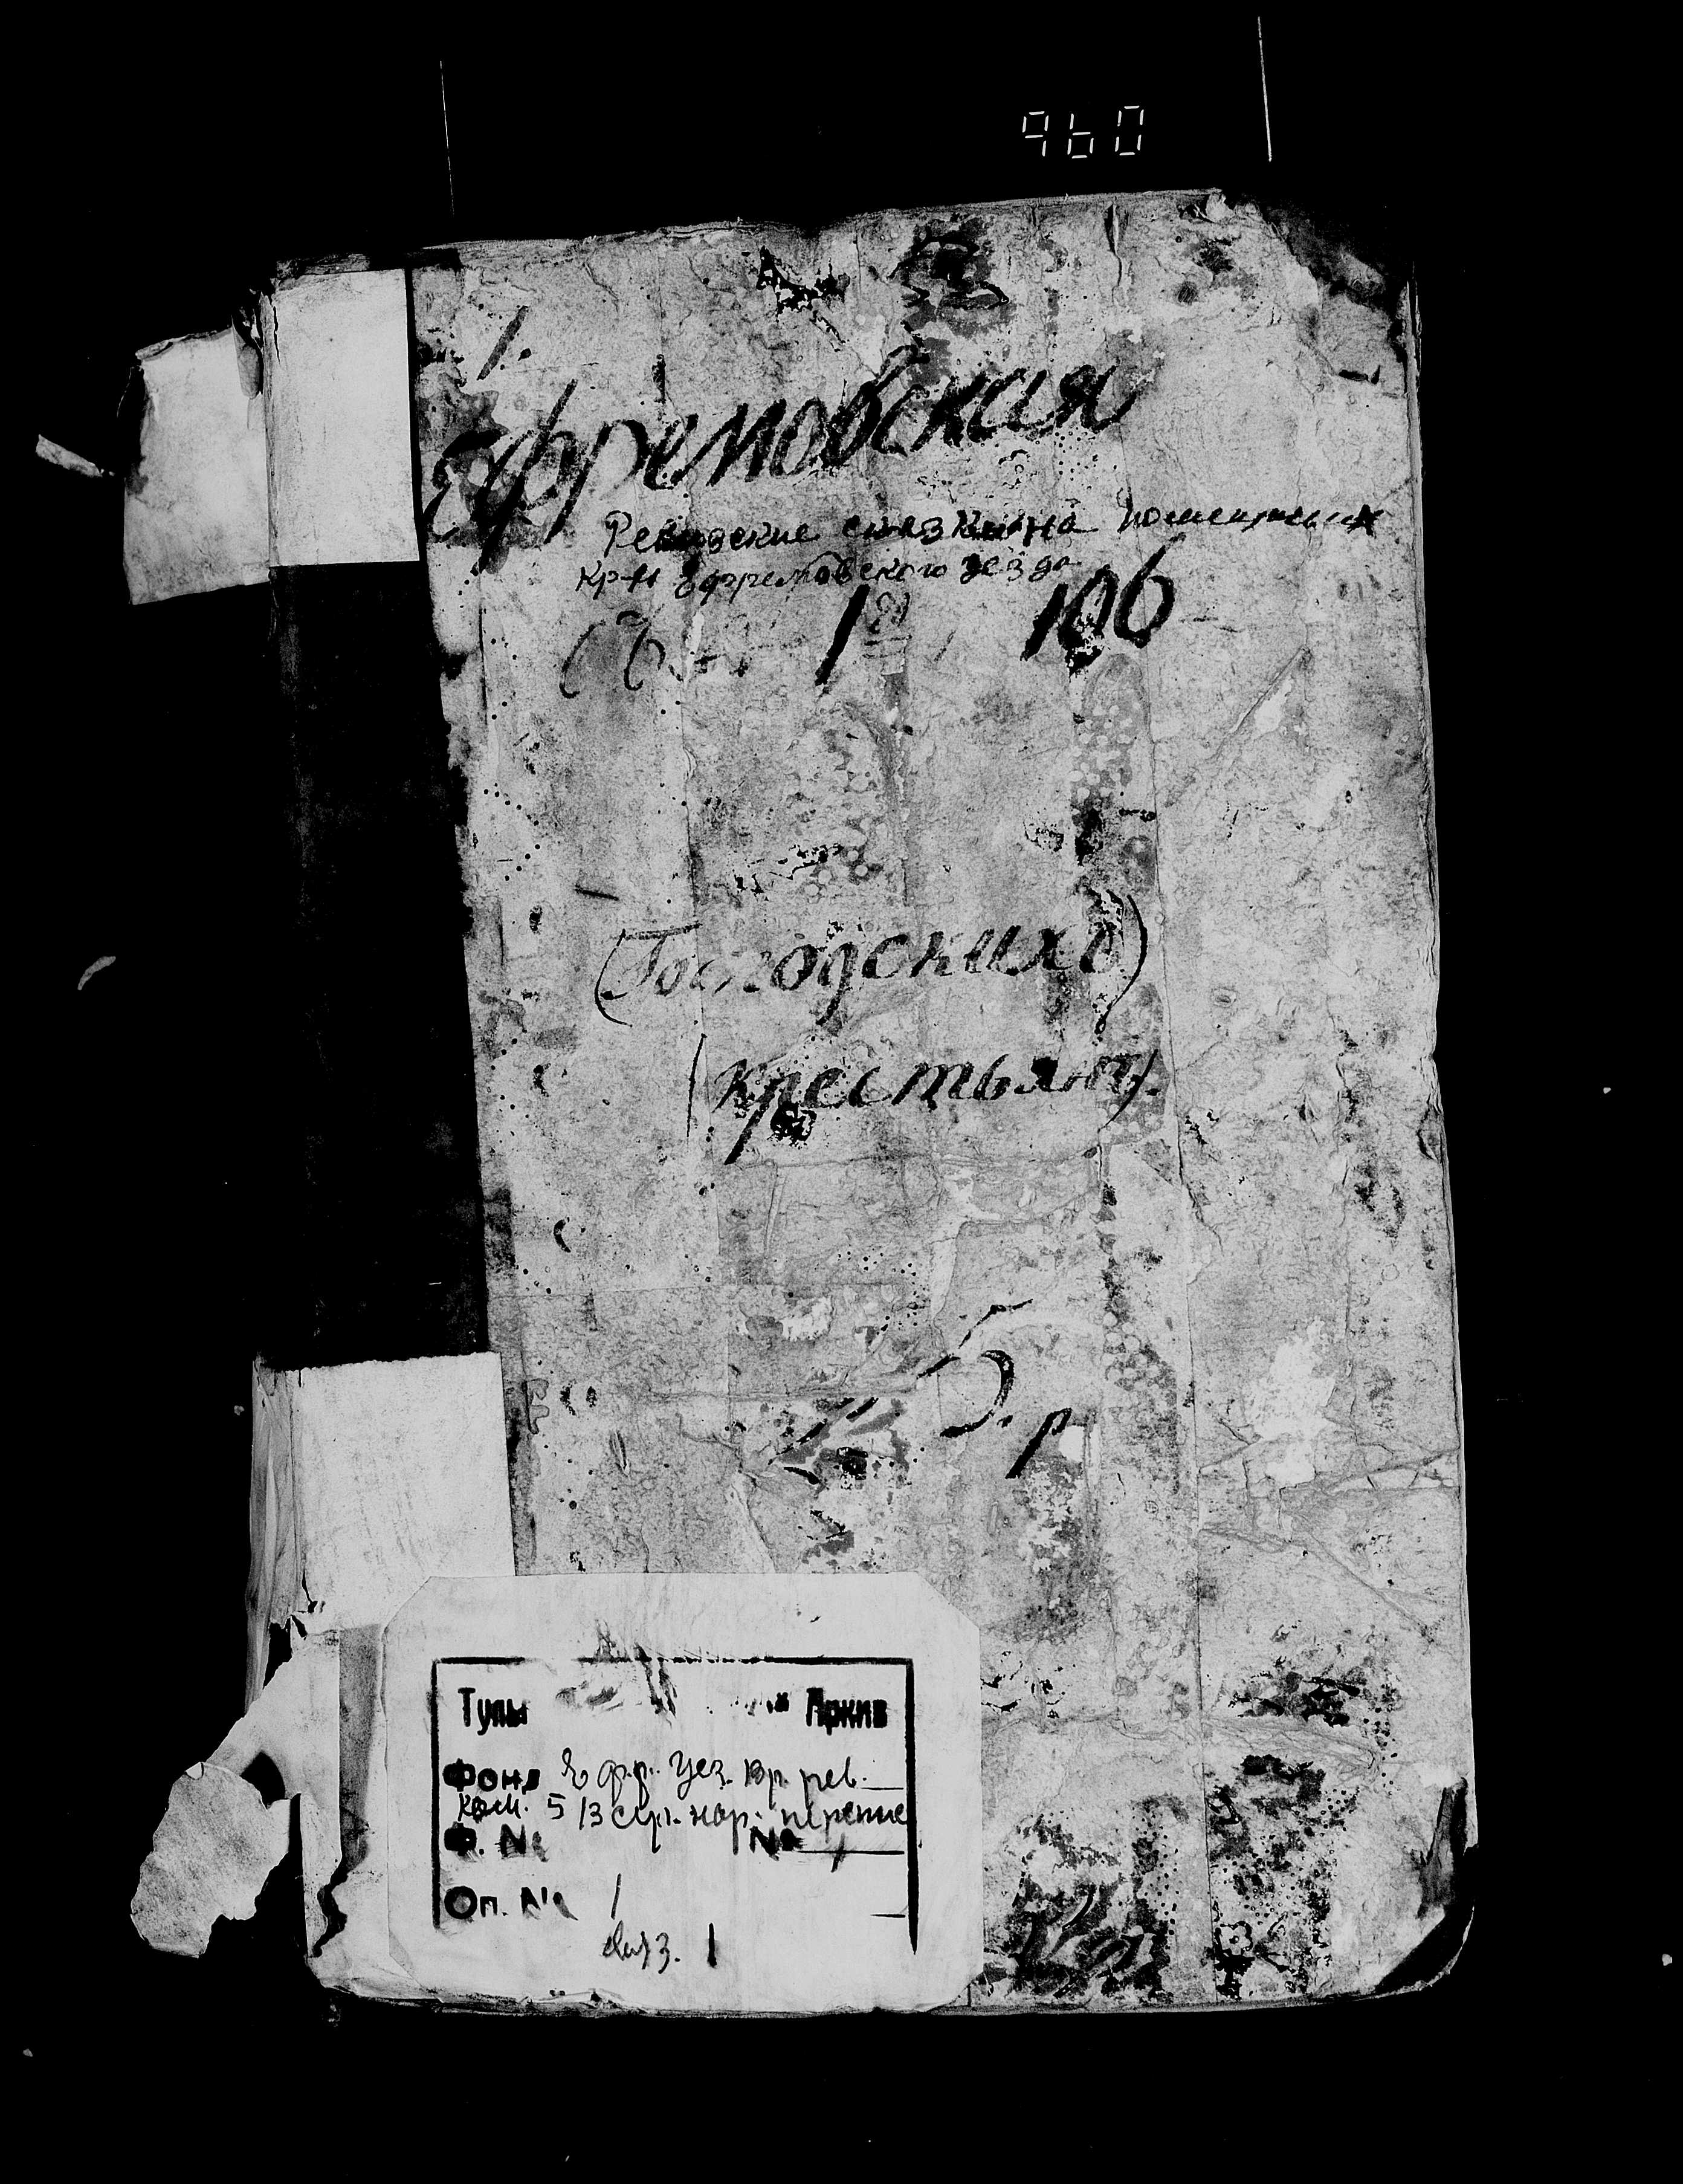 960
1.
Ефремовская
Ревизские сказки на помещичьих
кр-н Ефремовского уезда
1 106
(Господскихъ)
(крестьянъ).
5. р
Тулы Архив
Фонд Ефр. уез. вр. рев.
ком. 5
Ф. № № 1
Оп. № 1
1